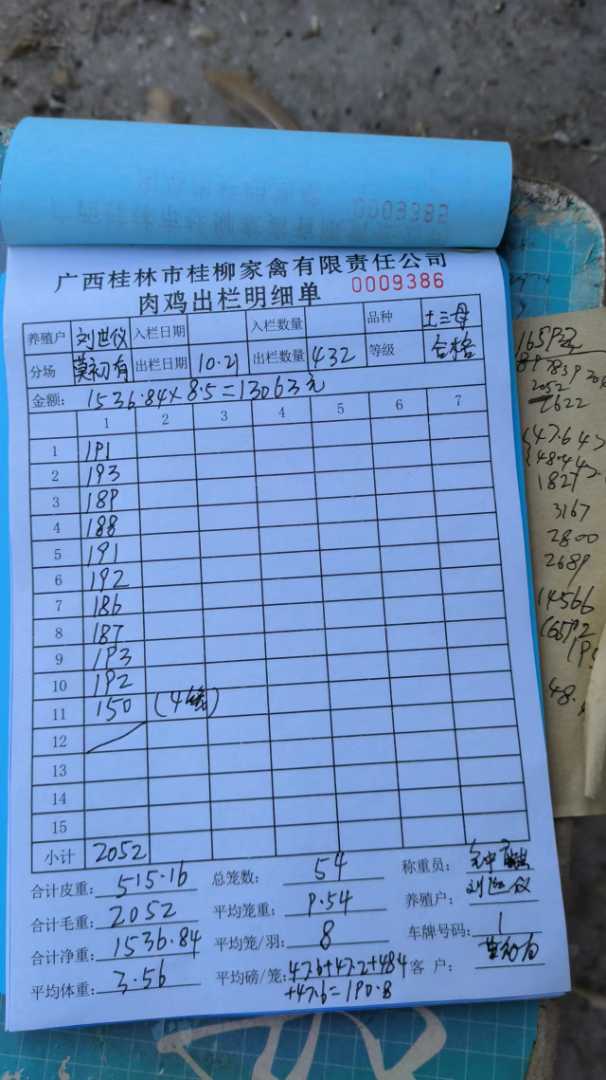 0009385
广西桂林市桂柳家禽有限责任公司
肉鸡出栏明细单 0009386
养殖户 刘世仪 入栏日期 入栏数量 品种 土三母
分场 莫初有 出栏日期 10.21 出栏数量 432 等级 合格
金额: 1536.84×8.5=13063元
1 2 3 4 5 6 7
1 191
2 193
3 189
4 188
5 191
6 192
7 186
8 187
9 193
10 192
11 150 (4笼)
12
13
14
15
小计 2052
合计皮重: 515.16 总笼数: 54 称重员:
合计毛重: 2052 平均笼重: 9.54 养殖户: 刘世仪
合计净重: 1536.84 平均笼/羽: 8 车牌号码: 1
平均体重: 3.56 平均磅/笼: 47.6+47.2+48.4 客户: 莫初有
+47.6=190.8
2052
2622
3167
2800
2689
14566